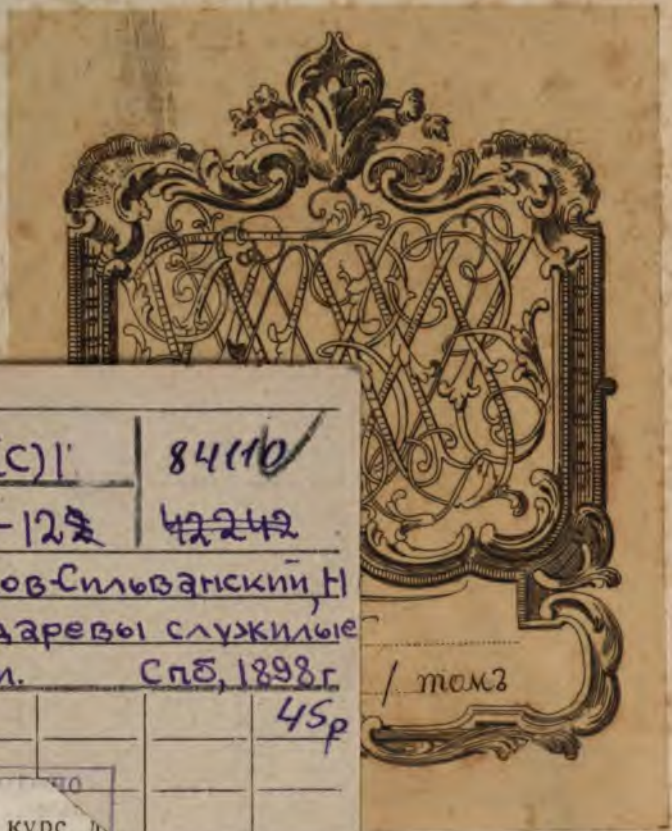 (С)1 84110
-122 42242
ов-Сильванский, Н
даревы служилые
Спб, 1898г
45р
/ томъ
по
курс